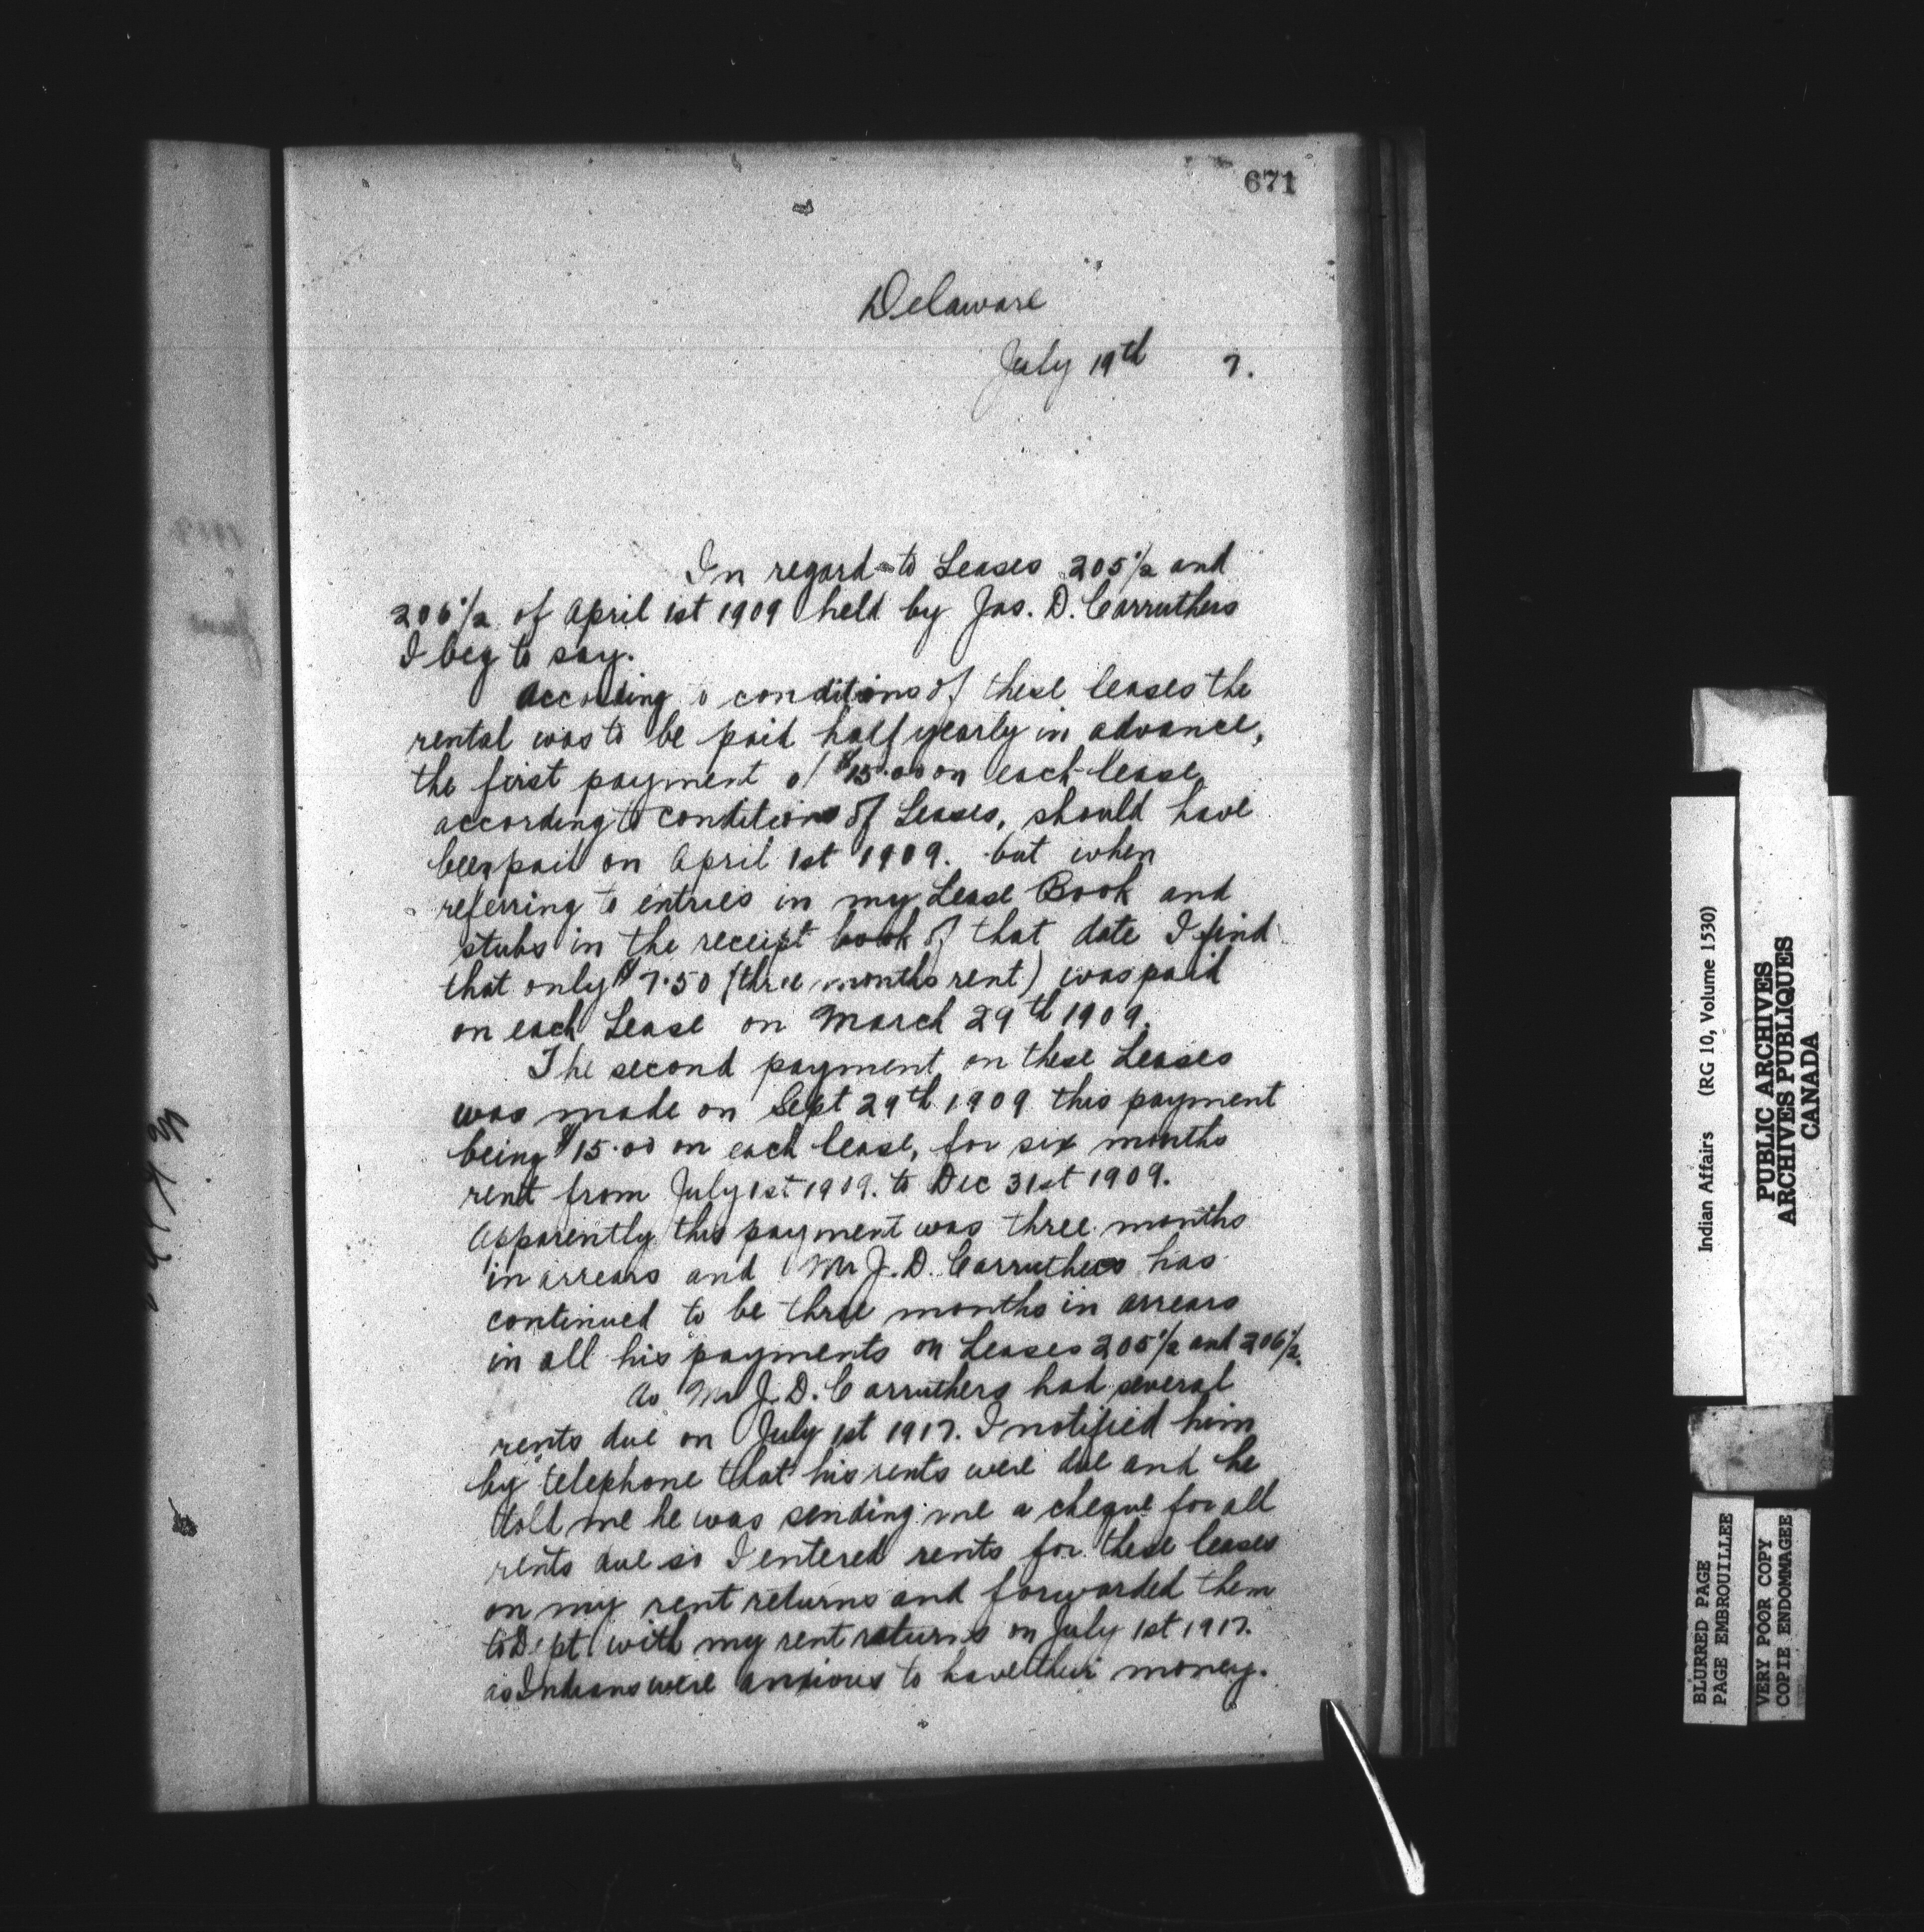 671
Delaware
July 19th 7.
In regard to Leases 205½ and
206½ of April 1st 1909 held by Jas. D. Carruthers
I beg to say.
According to conditions of these leases the
rental was to be paid half yearly in advance,
the first payment of $15.00 on each lease,
according to conditions of Leases, should have
been paid on April 1st 1909. but when
referring to entries in my Lease Book and
stubs in the receipt book of that date I find
that only $7.50 (three months rent) was paid
on each Lease on March 29th 1909.
The second payment on these Leases
was made on Sept 29th 1909 this payment
being $15.00 on each lease, for six months
rent from July 1st 1909. to Dec 31st 1909.
Apparently this payment was three months
in arrears and Mr J. D. Carruthers has
continued to be three months in arrears
in all his payments on Leases 205½ and 206½.
As Mr J. D. Carruthers had several
rents due on July 1st 1917. I notified him
by telephone that his rents were due and he
told me he was sending me a cheque for all
rents due so I entered rents for these leases
on my rent returns and forwarded them
to Dept. with my rent returns on July 1st 1917.
as Indians were anxious to have their money.
Indian Affairs (RG 10, Volume 1530)
PUBLIC ARCHIVES
ARCHIVES PUBLIQUES
CANADA
BLURED PAGE
PAGE EMBROUILLEE
VERY POOR COPY
COPIE ENDOMMAGEE